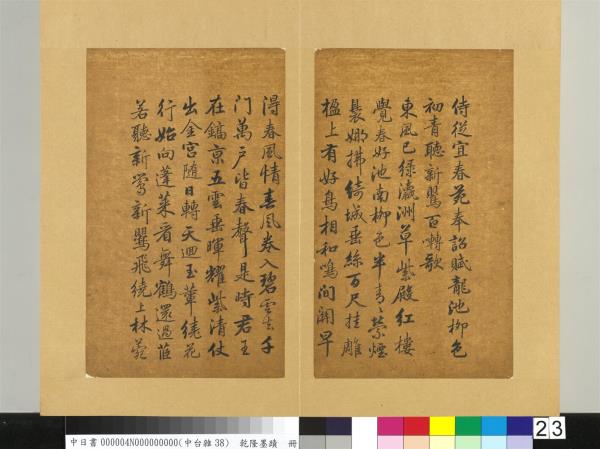 侍從宜春苑奉詔賦龍池柳色
初青聽新鶯百囀歌
東風已綠瀛洲草紫殿紅樓
覺春好池南柳色半青〻縈煙
裊娜拂綺城垂絲百尺挂雕
楹上有好鳥相和鳴間關早
得春風情春風卷入碧雲去千
門萬戶皆春聲是時君王
在鎬京五雲垂暉耀紫清仗
出金宮隨日轉天迴玉輦繞花
行始向蓬萊看舞鶴還過茝
若聽新鶯新鶯飛繞上林苑
中日書 000004N000000000(中台雜 38) 乾隆墨蹟 冊
23